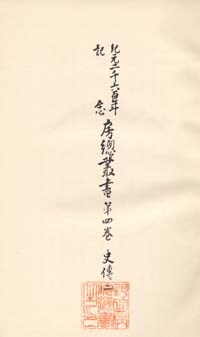 紀元二千六百年
記念
房總叢書第四巻 史傳二